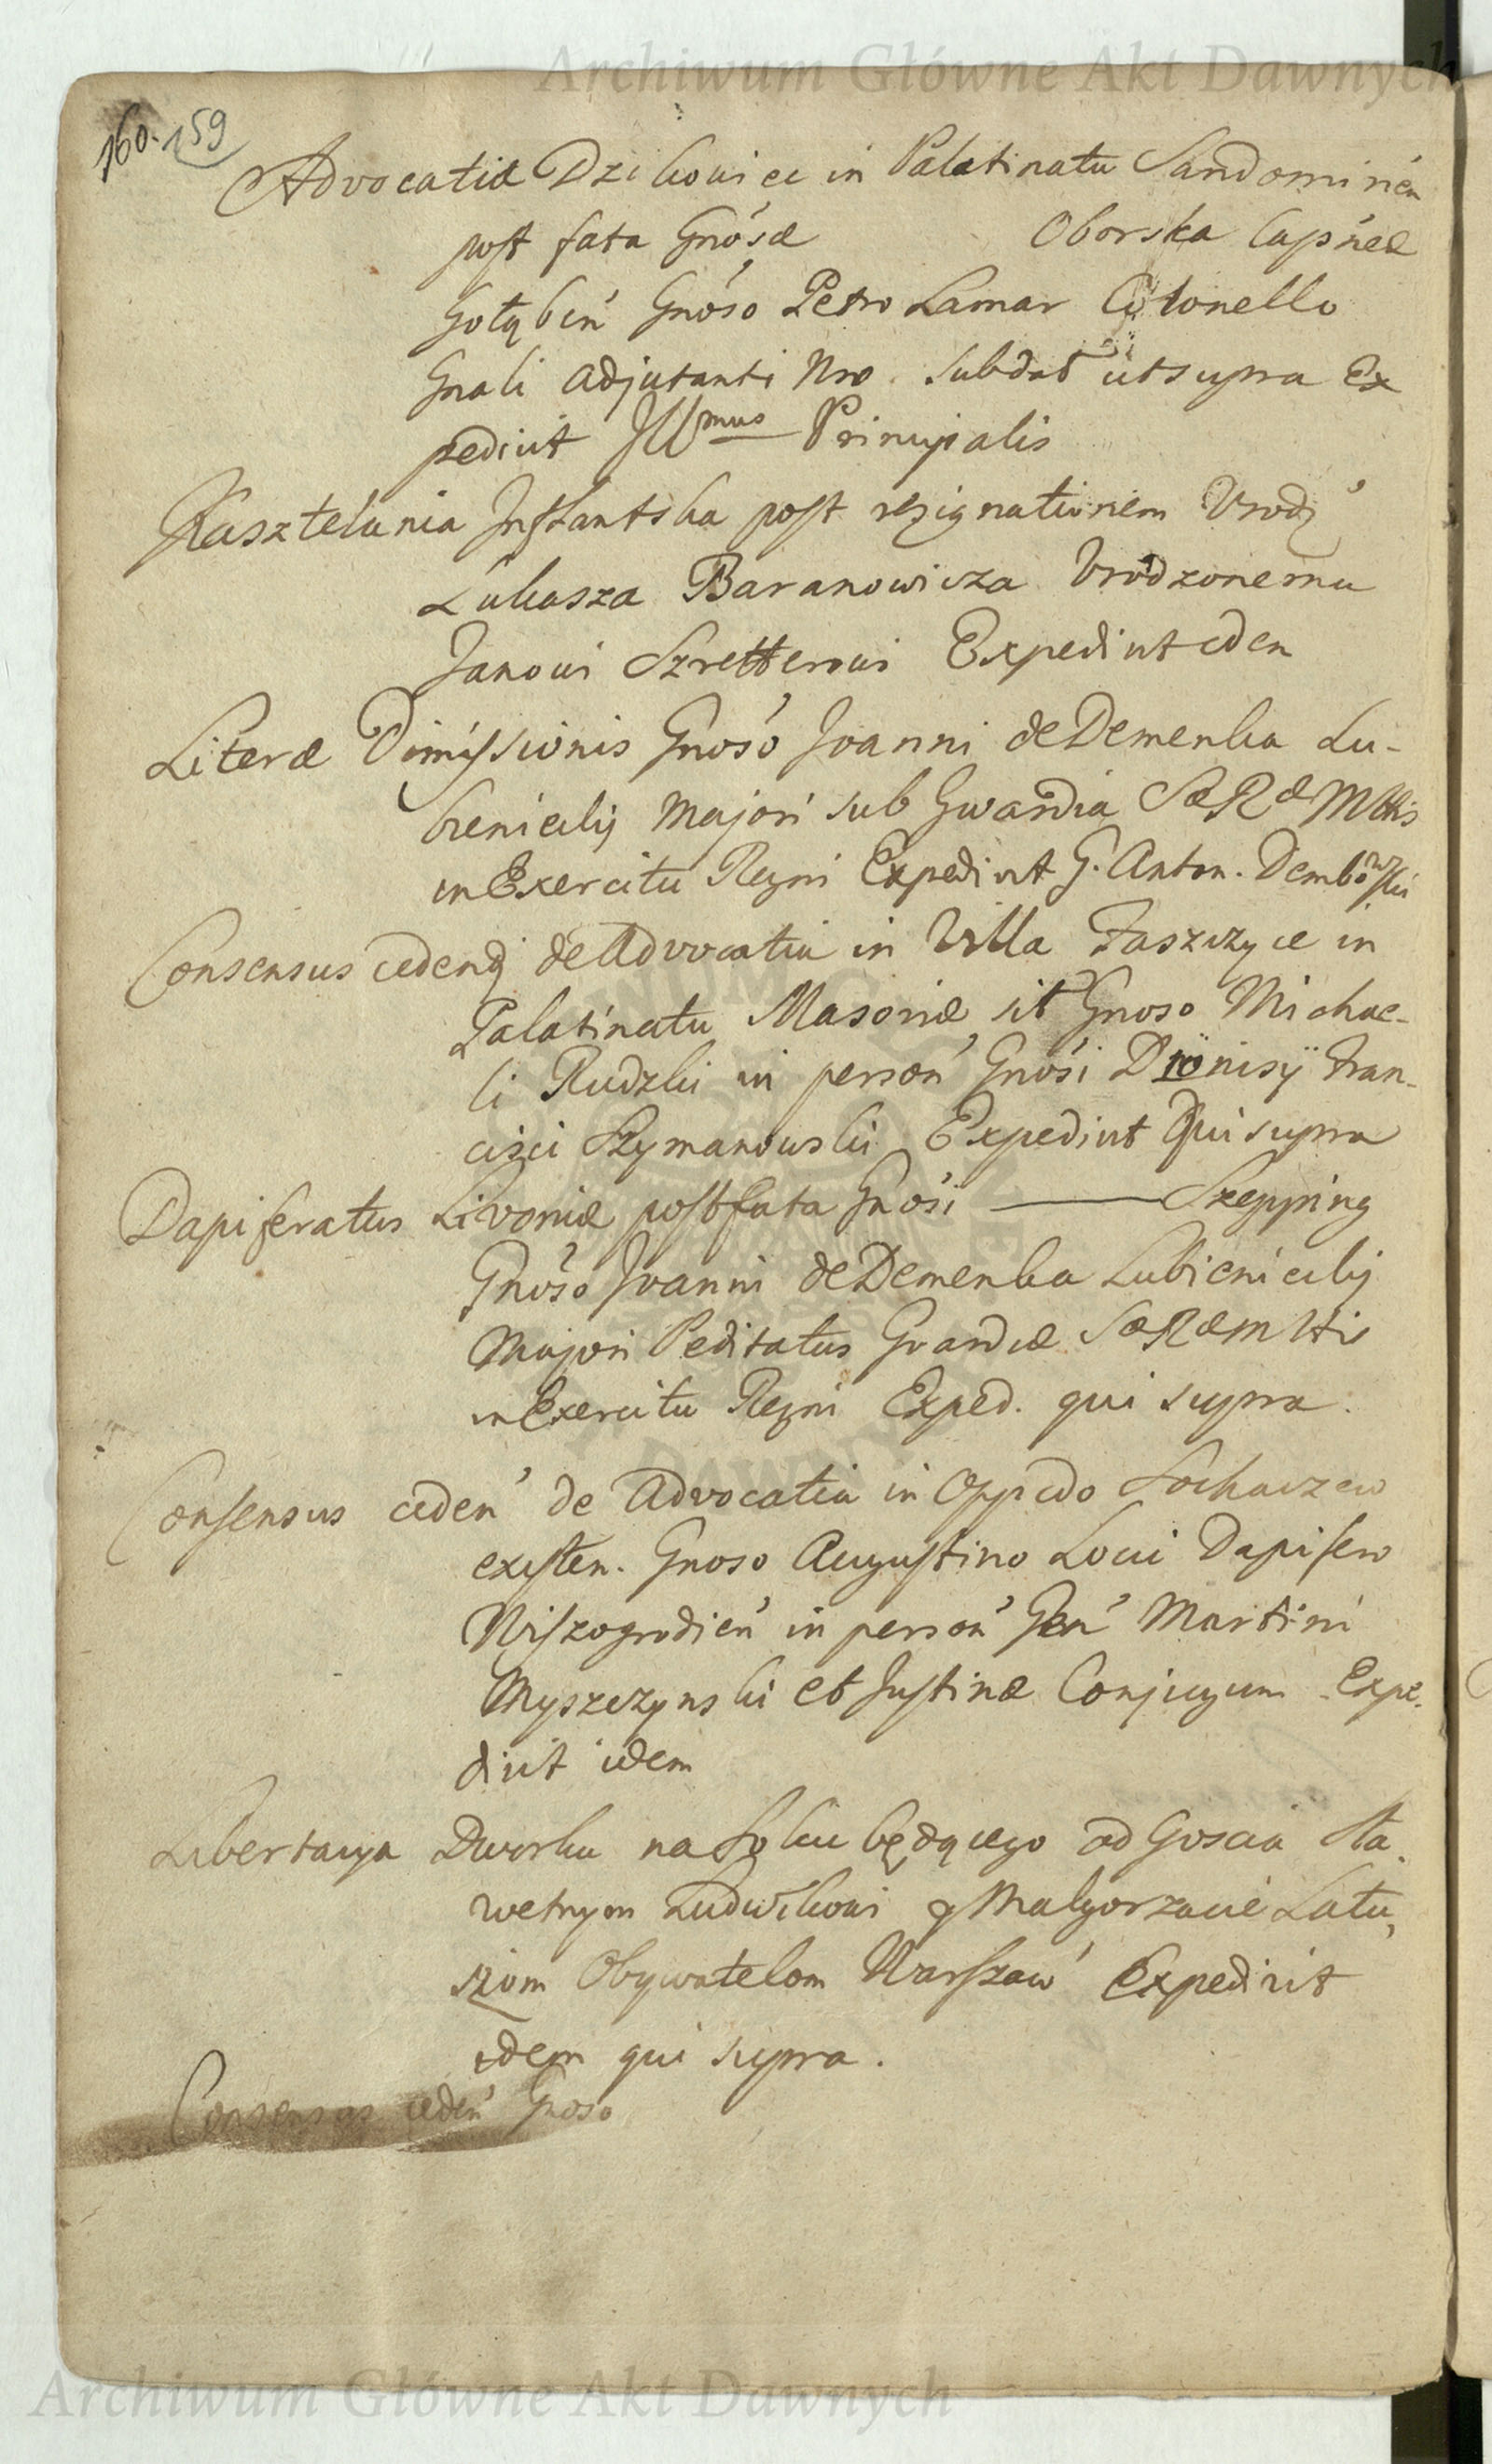 Archiwum Główne Akt Dawnych
160. 159
Advocatia Dzikowiec in Palatinatu Sandomirien
post fata Gnosæ Oborska Capneæ
Gołąbień Gnoso Petro Lamar Colonello
Gnali Adjutanti Nro. sub dat ut supra Ex
pedivit Illmus Principalis
Kasztelania Inflantska post resignationem Urodz
Łukasza Baranowicza Urodzonemu
Janowi Szretterowi Expedivit eden
Literæ Dimissionis Gnoso Joanni de Demenka Lu-
bieniecky Majori sub Gwardia SæRæMttis
in Exercitu Regni Expedivit G. Anton. Dembowski
Consensus cedendi de Advocatia in Villa Faszczyce in
Palatinatu Masoviæ sit Gnoso Michae-
li Rudzki in person Gnosi Dionisÿ Fran-
cisci Szymanowski Expedivit Qui supra
Dapiferatus Livoniæ post fata Gnosi — Szepping
Gnoso Joanni de Demenka Lubieniecky
Majori Peditatus Gvardiæ SæRæMttis
in Exercitu Regni Exped. qui supra.
Consensus ceden de Advocatia in Oppido Sochaczew
existen. Gnoso Augustino Locci Dapifero
Wiszogrodien in person Gen Martini
Myszczynski et Justinæ Conjugum Expe-
divit idem
Libertacya Dworku na Solcu będącego od Goscia Sła-
wetnym Ludwikowi y Małgorzacie Latu-
szom Obywatelom Warszaw Expedivit
idem qui supra.
Consensus ceden Gnoso
Archiwum Główne Akt Dawnych